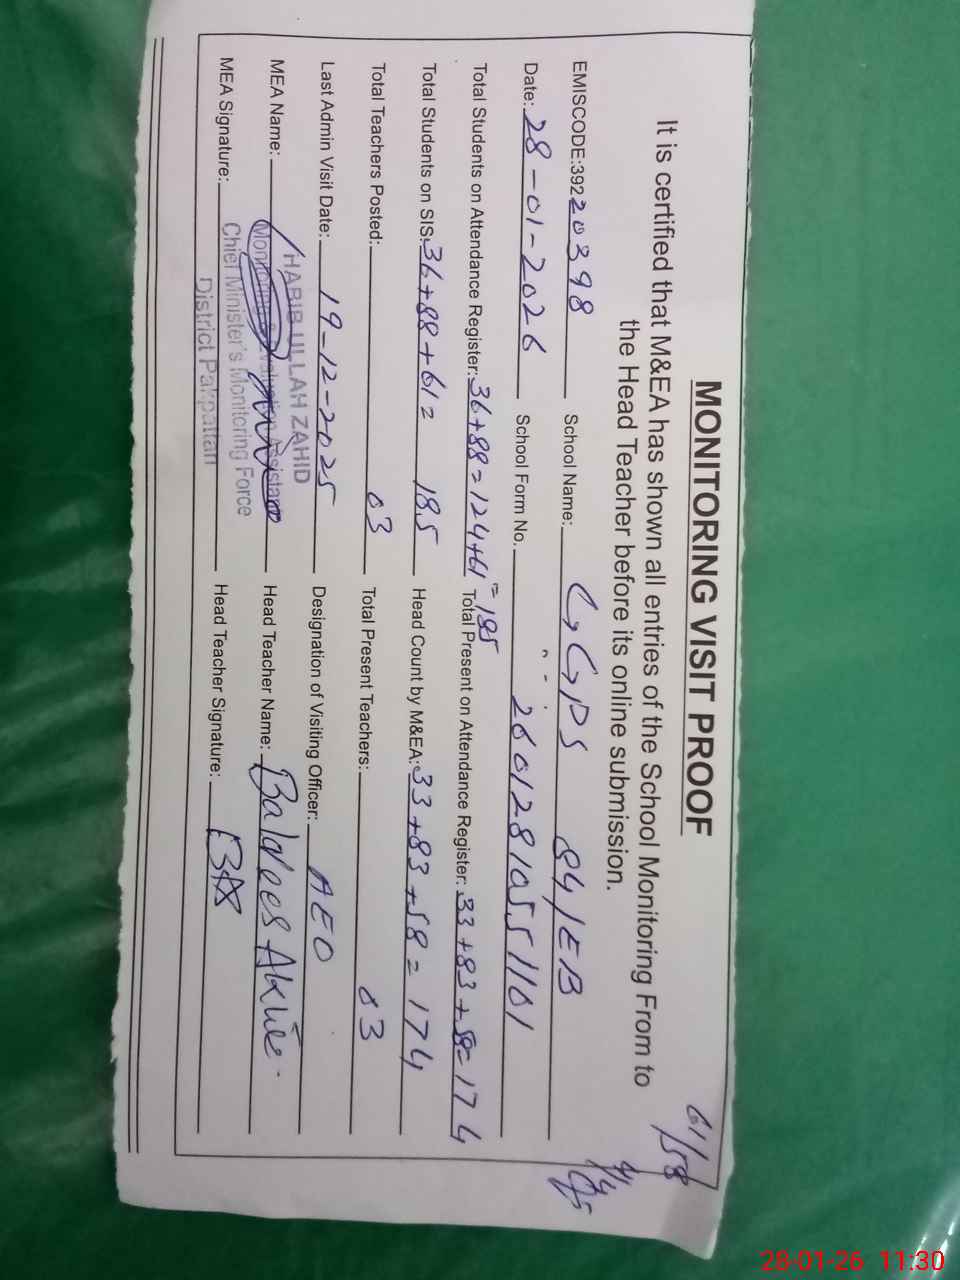 61/58
MONITORING VISIT PROOF
It is certified that M&EA has shown all entries of the School Monitoring From to
the Head Teacher before its online submission.
EMISCODE:39220398 School Name: GGPS 84/EB
Date: 28-01-2026 School Form No. 26012810551101
Total Students on Attendance Register: 36+88=124+61=185 Total Present on Attendance Register: 33+83+58=174
Total Students on SIS: 36+88+61= 185 Head Count by M&EA: 33+83+58=174
Total Teachers Posted: 03 Total Present Teachers: 03
Last Admin Visit Date: 19-12-2025 Designation of Visiting Officer: AEO
HABIB ULLAH ZAHID
MEA Name: Head Teacher Name:
Monitoring & Evaluation Assistant
MEA Signature: Head Teacher Signature:
Chief Minister's Monitoring Force
District Pakpattan
28-01-26 11:30